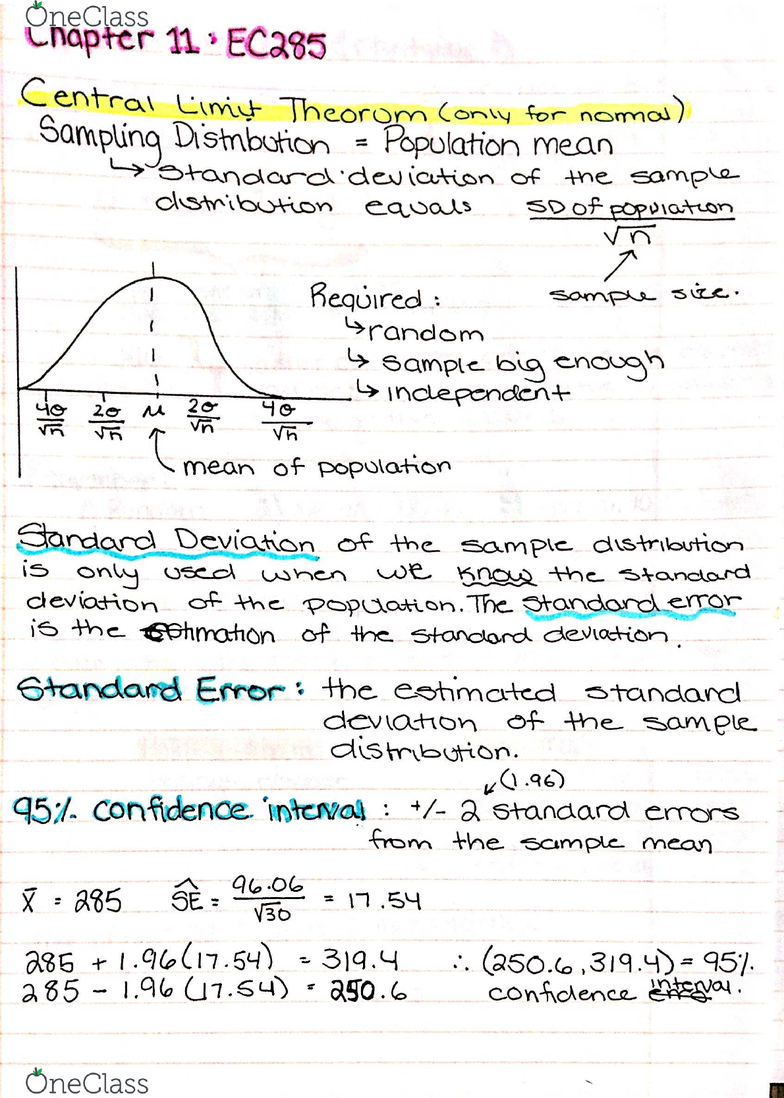 OneClass
Chapter 11: EC285
Central Limit Theorum (only for normal)
Sampling Distribution = Population mean
↳ Standard deviation of the sample
distribution equals SD of population
√n
sample size.
Required:
↳ random
↳ sample big enough
↳ independent
4σ/√n 2σ/√n μ 2σ/√n 4σ/√n
mean of population
Standard Deviation of the sample distribution
is only used when we know the standard
deviation of the population. The standard error
is the estimation of the standard deviation.
Standard Error: the estimated standard
deviation of the sample
distribution.
(1.96)
95% confidence interval: +/- 2 standard errors
from the sample mean
x̄ = 285 ŜE = 96.06/√30 = 17.54
285 + 1.96(17.54) = 319.4 ∴ (250.6, 319.4) = 95%
285 - 1.96(17.54) = 250.6 confidence interval.
OneClass